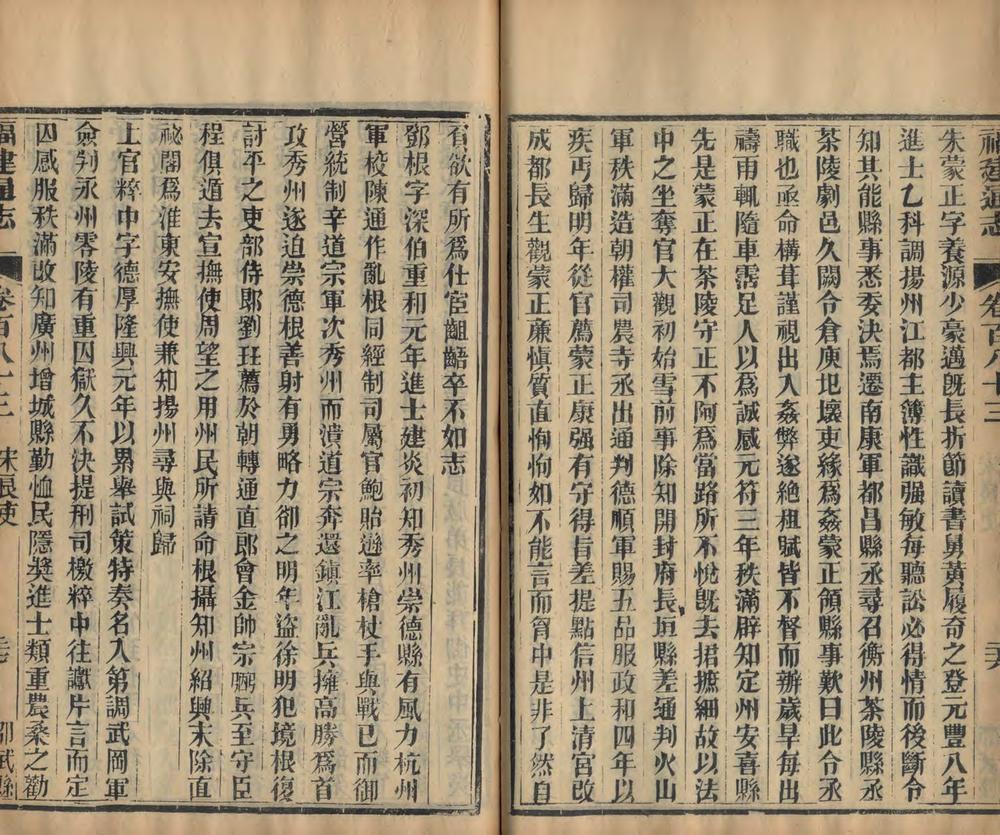 福建通志 卷百八十三
朱蒙正字養源少豪邁旣長折節讀書舅黃履奇之登元豐八年
進士乙科調揚州江都主簿性識强敏每聽訟必得情而後斷令
知其能縣事悉委決焉遷南康軍都昌縣丞尋召衡州茶陵縣丞
茶陵劇邑久闕令倉庾圯壞吏緣爲姦蒙正領縣事歎曰此令丞
職也亟命構葺謹視出入姦弊遂絶租賦皆不督而辦歲旱每出
禱雨輒隨車霑足人以爲誠感元符三年秩滿辟知定州安喜縣
先是蒙正在茶陵守正不阿爲當路所不悅旣去捃摭細故以法
中之坐奪官大觀初始雪前事除知開封府長垣縣差通判火山
軍秩滿造朝權司農寺丞出通判德順軍賜五品服政和四年以
疾丐歸明年從官薦蒙正康强有守得旨差提點信州上清宮改
成都長生觀蒙正亷愼質直恂恂如不能言而胷中是非了然自
省欲有所爲仕宦齟齬卒不如志
鄧根字深伯重和元年進士建炎初知秀州崇德縣有風力杭州
軍校陳通作亂根同經制司屬官鮑貽遜率槍杖手與戰已而御
營統制辛道宗軍次秀州而潰道宗奔還鎮江亂兵擁高勝爲首
攻秀州遂迫崇德根善射有勇略力卻之明年盜徐明犯境根復
討平之吏部侍郎劉珏薦於朝轉通直郎會金帥宗弼兵至守臣
程俱遁去宣撫使周望之用州民所請命根攝知州紹興末除直
祕閣爲淮東安撫使兼知揚州尋與祠歸
上官粹中字德厚隆興元年以累舉試策特奏名入第調武岡軍
僉判永州零陵有重囚獄久不決提刑司檄粹中往讞片言而定
囚感服秩滿改知廣州增城縣勤恤民隱奬進士類重農桑之勸
福建通志 卷百八十三 宋良吏 邵武縣